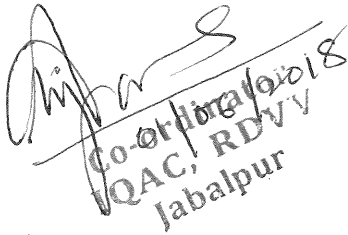 01/06/2018
Co-ordinator
IQAC, RDVV
Jabalpur